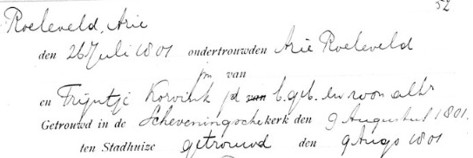 52
Roeleveld, Arie
den 26 Juli 1801 ondertrouwden Arie Roeleveld
jm van
en Trijntje Korvink jd van b. geb. en woon. alhr
Getrouwd in de Scheveningschekerk den 9 Augustus 1801.
ten Stadhuize getrouwd den 9 Augs 1801